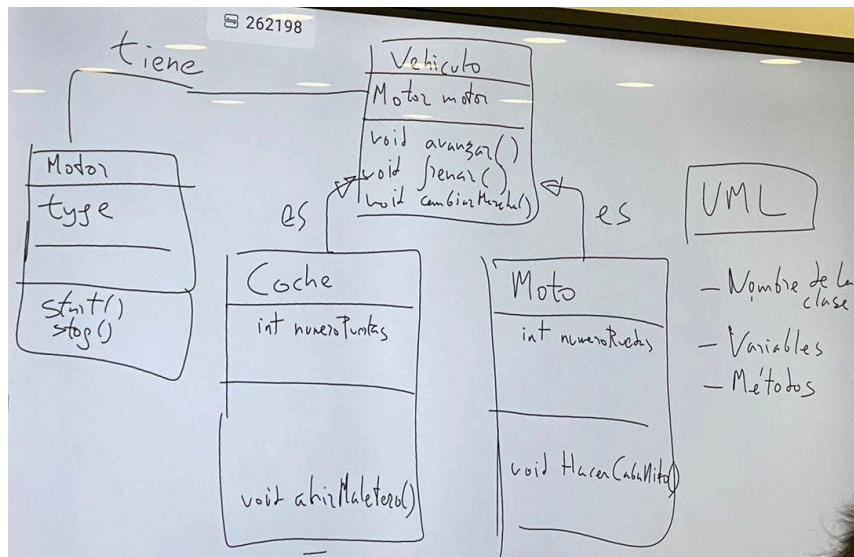 262198
tiene
Vehiculo
Motor motor
void avanzar()
void frenar()
void cambiarMarcha()
Motor
type
start()
stop()
es
es
Coche
int numeroPuertas
void abrirMaletero()
Moto
int numeroRuedas
void HacerCaballito()
UML
- Nombre de la
clase
- Variables
- Métodos